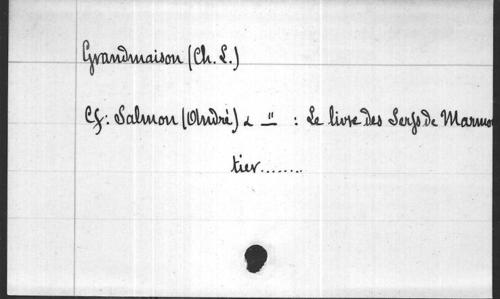 Grandmaison (Ch. L.)
Cf: Salmon (André) & — " : Le livre des Serfs de Marmou
tier........